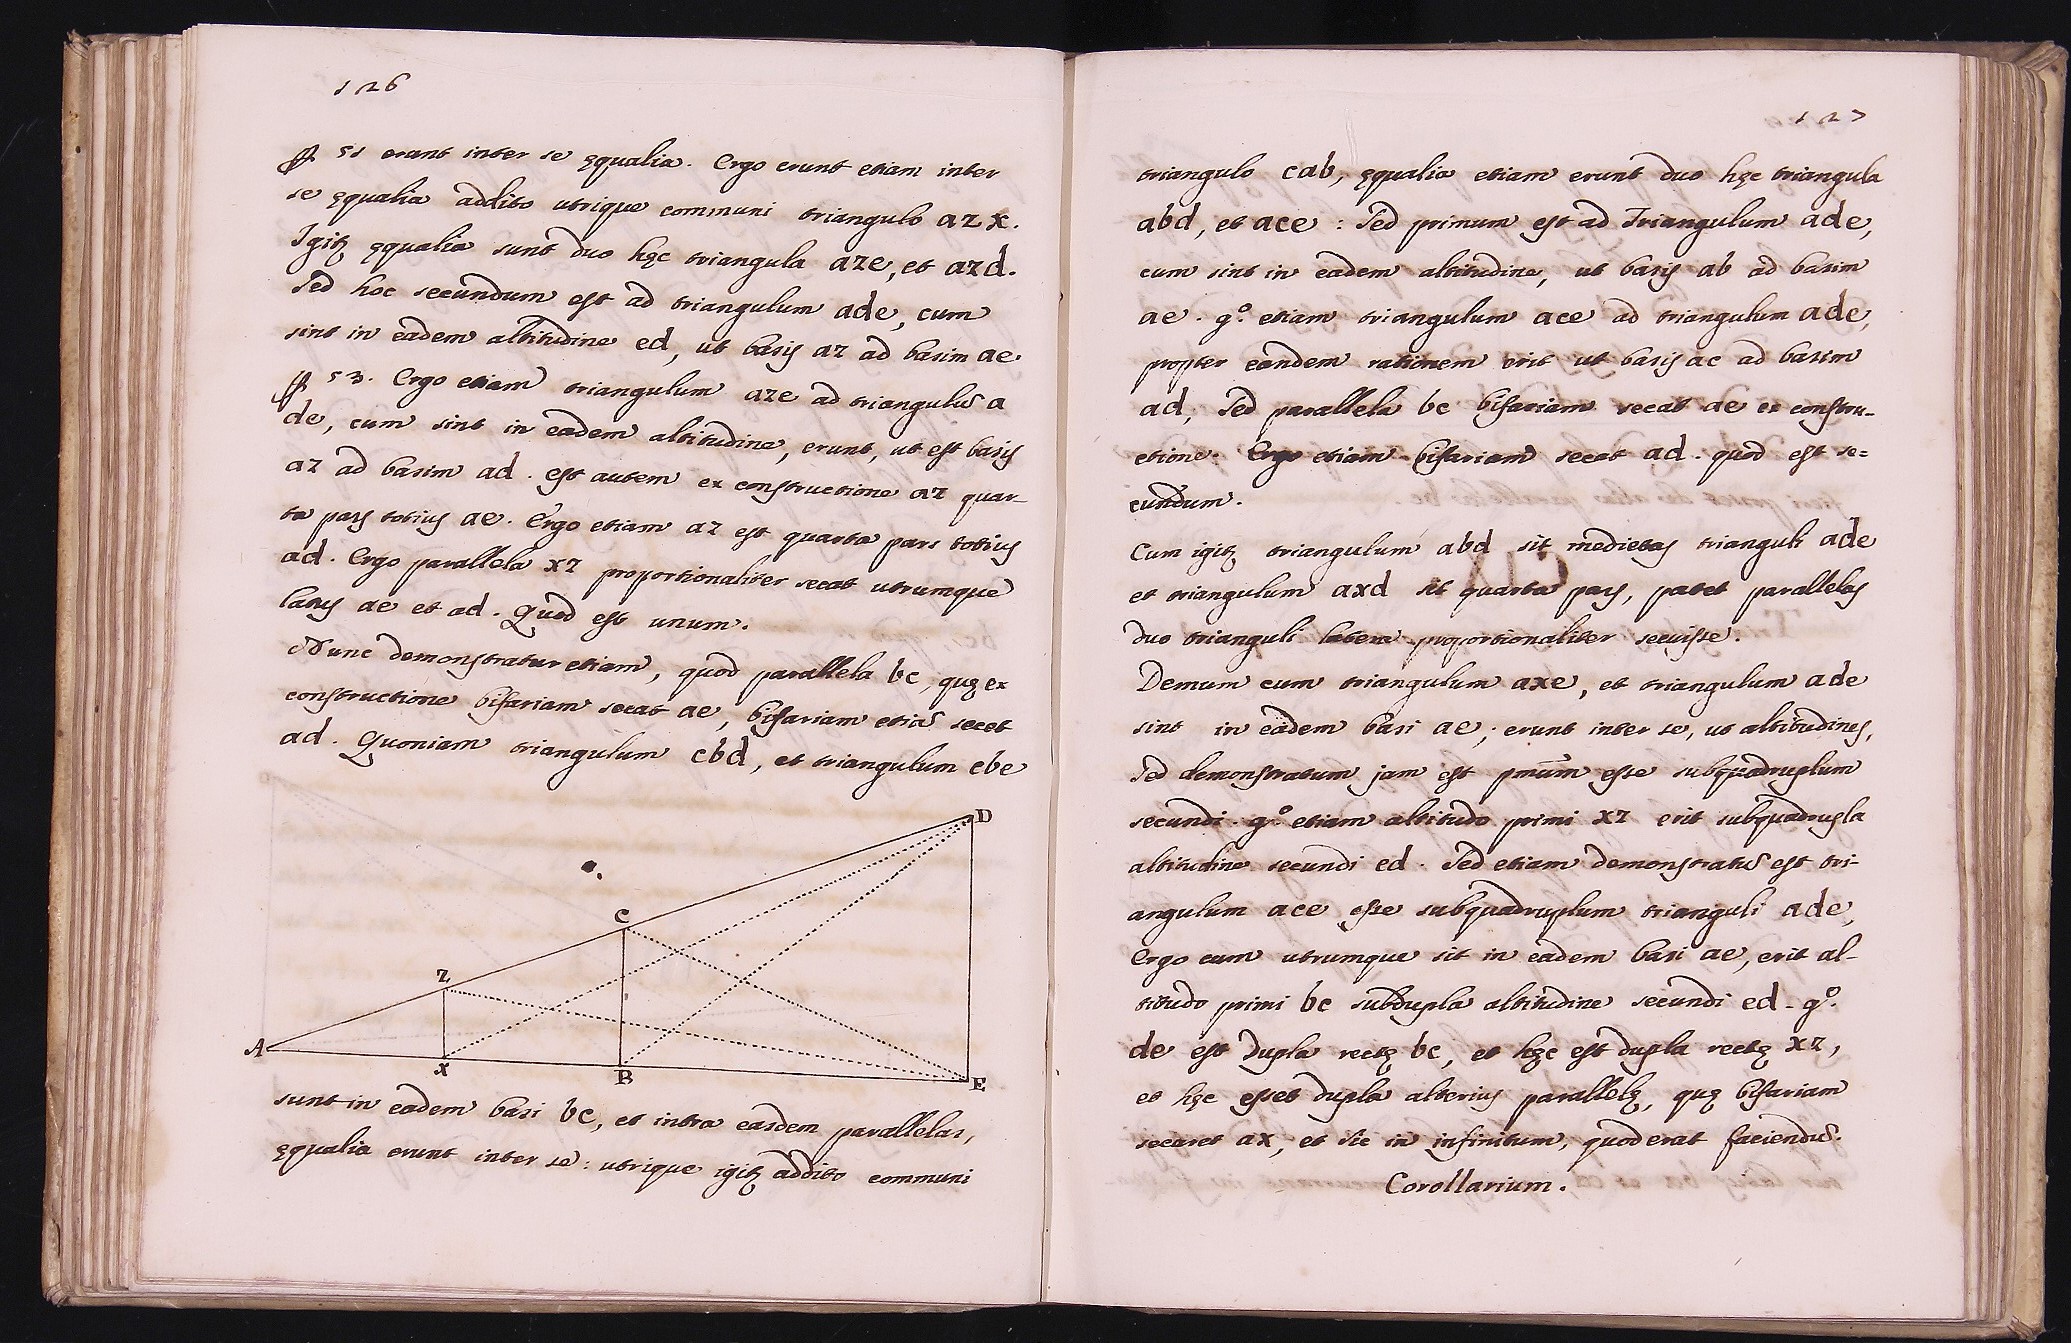 126
℟ 51 erunt inter se ęqualia. Ergo erunt etiam inter
se ęqualia addito utrique communi triangulo azx.
Igitꝫ ęqualia sunt duo hęc triangula aze, et azd.
Sed hoc secundum est ad triangulum ade, cum
sint in eadem altitudine ed, ut basis az ad basim ae
℟ 53. Ergo etiam triangulum aze ad triangulũ a
de, cum sint in eadem altitudine, erunt, ut est basis
az ad basim ad. est autem ex constructione az quar-
ta pars totius ae. Ergo etiam az est quarta pars totius
ad. Ergo parallela xz proportionaliter secat utrumque
latus ae et ad. Quod est unum.
Nunc demonstratur etiam, quod parallela bc, quę ex
constructione bifariam secat ae, bifariam etiã secet
ad. Quoniam triangulum cbd, et triangulum cbe
D
C
Z
A
X
B
E
sunt in eadem basi bc, et intra easdem parallelas,
ęqualia erunt inter se: utrique igitꝫ addito communi
127
triangulo cab, ęqualia etiam erunt duo hęc triangula
abd, et ace: Sed primum est ad Triangulum ade,
cum sint in eadem altitudine, ut basis ab ad basim
ae. gº. etiam triangulum ace ad triangulum ade,
propter eandem rationem erit ut basis ac ad basim
ad, Sed parallela bc bifariam secat ae ex constru-
ctione. Ergo etiam bifariam secat ad. quod est se=
cundum.
Cum igitꝫ triangulum abd sit medietas trianguli ade
et triangulum axd sit quarta pars, patet parallelas
duo trianguli latera proportionaliter secuisse.
Demum cum triangulum axe, et triangulum ade
sint in eadem basi ae; erunt inter se, ut altitudines,
Sed demonstratum jam est pmũm esse subquadruplum
secundi. gº. etiam altitudo primi xz erit subquadrupla
altitudine secundi ed. Sed etiam demonstratũ est tri-
angulum ace esse subquadruplum trianguli ade,
Ergo cum utrumque sit in eadem basi ae, erit al-
titudo primi bc subdupla altitudine secundi ed. gº.
de est dupla rectę bc, et hęc est dupla rectę xz,
et hęc esset dupla alterius parallelę, quę bifariam
secaret ax, et sic in infinitum, quod erat faciendũ.
Corollarium.